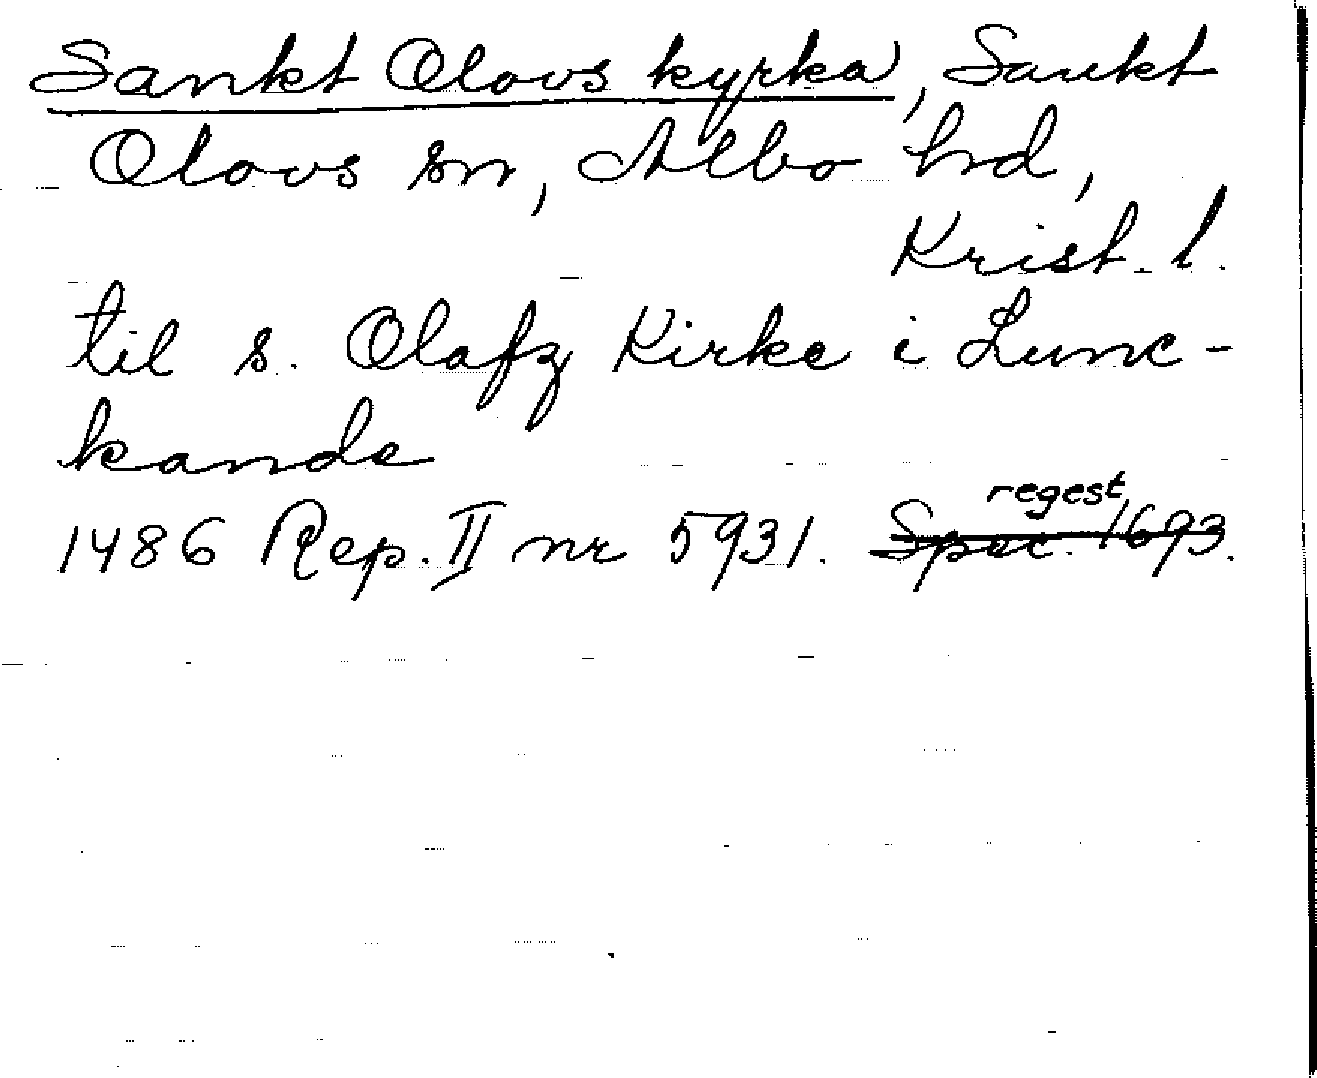 Sankt Olovs kyrka, Sankt
Olovs sn, Albo hrd,
Krist. l.
til s. Olafz Kirke i Lunc-
kande
regest
1486 Rep. II nr 5931. Spec. 1693.